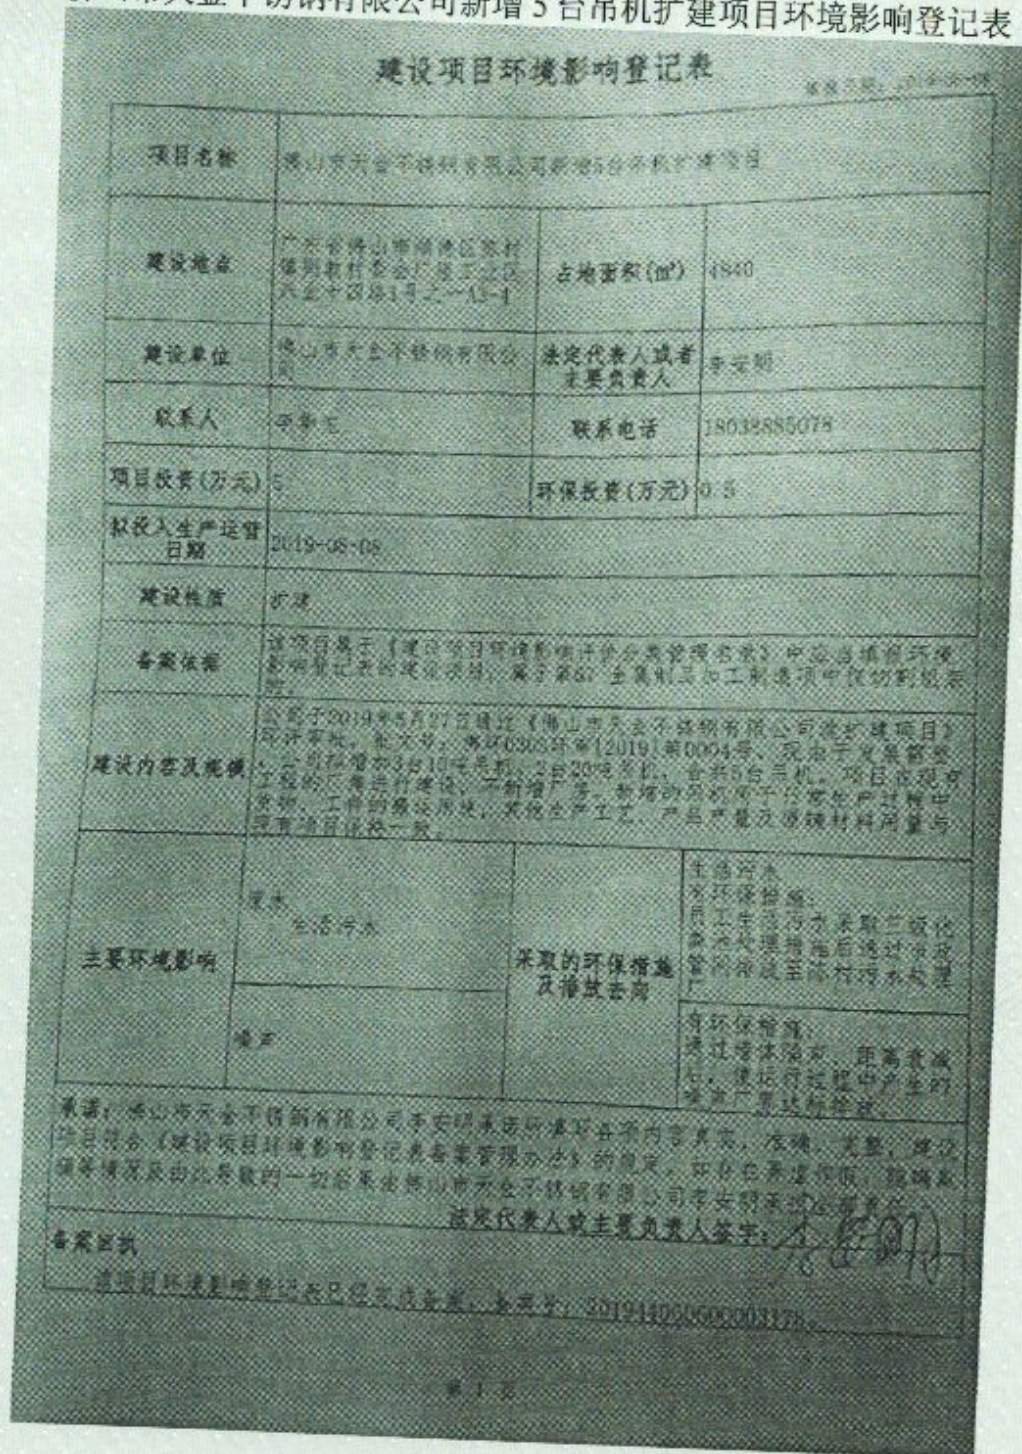 不锈钢有限公司新增5台吊机扩建项目环境影响登记表
建设项目环境影响登记表
项目名称
佛山市天金不锈钢有限公司新增5台吊机扩建项目
建设地点
广东省佛山市顺德区陈村
占地面积(㎡)
4840
建设单位
佛山市天金不锈钢有限公
司
法定代表人或者
主要负责人
李安明
联系人
联系电话
18038885078
项目投资(万元)
5
环保投资(万元)
0.5
拟投入生产运营
日期
2019-08-08
建设性质
扩建
备案依据
该项目属于《建设项目环境影响评价分类管理名录》中应当填报环境
影响登记表的建设项目,属于第67 金属制品加工制造项中仅切割组装
的。
建设内容及规模
公司于2019年5月27日通过《佛山市天金不锈钢有限公司改扩建项目》
环评审批,批文号:佛环0303环审[2019]第0004号、现由于发展需要
,公司拟增加3台10吨吊机,2台20吨吊机,合共5台吊机。项目在现有
现有项目保持一致。
主要环境影响
废水
生活污水
噪声
采取的环保措施
及排放去向
生活污水
有环保措施:
员工生活污水采取三级化
粪池处理措施后通过市政
管网排放至陈村污水处理
厂
有环保措施:
通过墙体隔声、距离衰减
后,使运行过程中产生的
噪声厂界达标排放。
承诺:佛山市天金不锈钢有限公司李安明承诺所填写各项内容真实、准确、完整,建设
项目符合《建设项目环境影响登记表备案管理办法》的规定。如存在弄虚作假、隐瞒欺
骗等情况及由此导致的一切后果由佛山市天金不锈钢有限公司李安明承担全部责任。
法定代表人或主要负责人签字:李安明
备案回执
该项目环境影响登记表已经完成备案,备案号:201944060600003178。
第 1 页